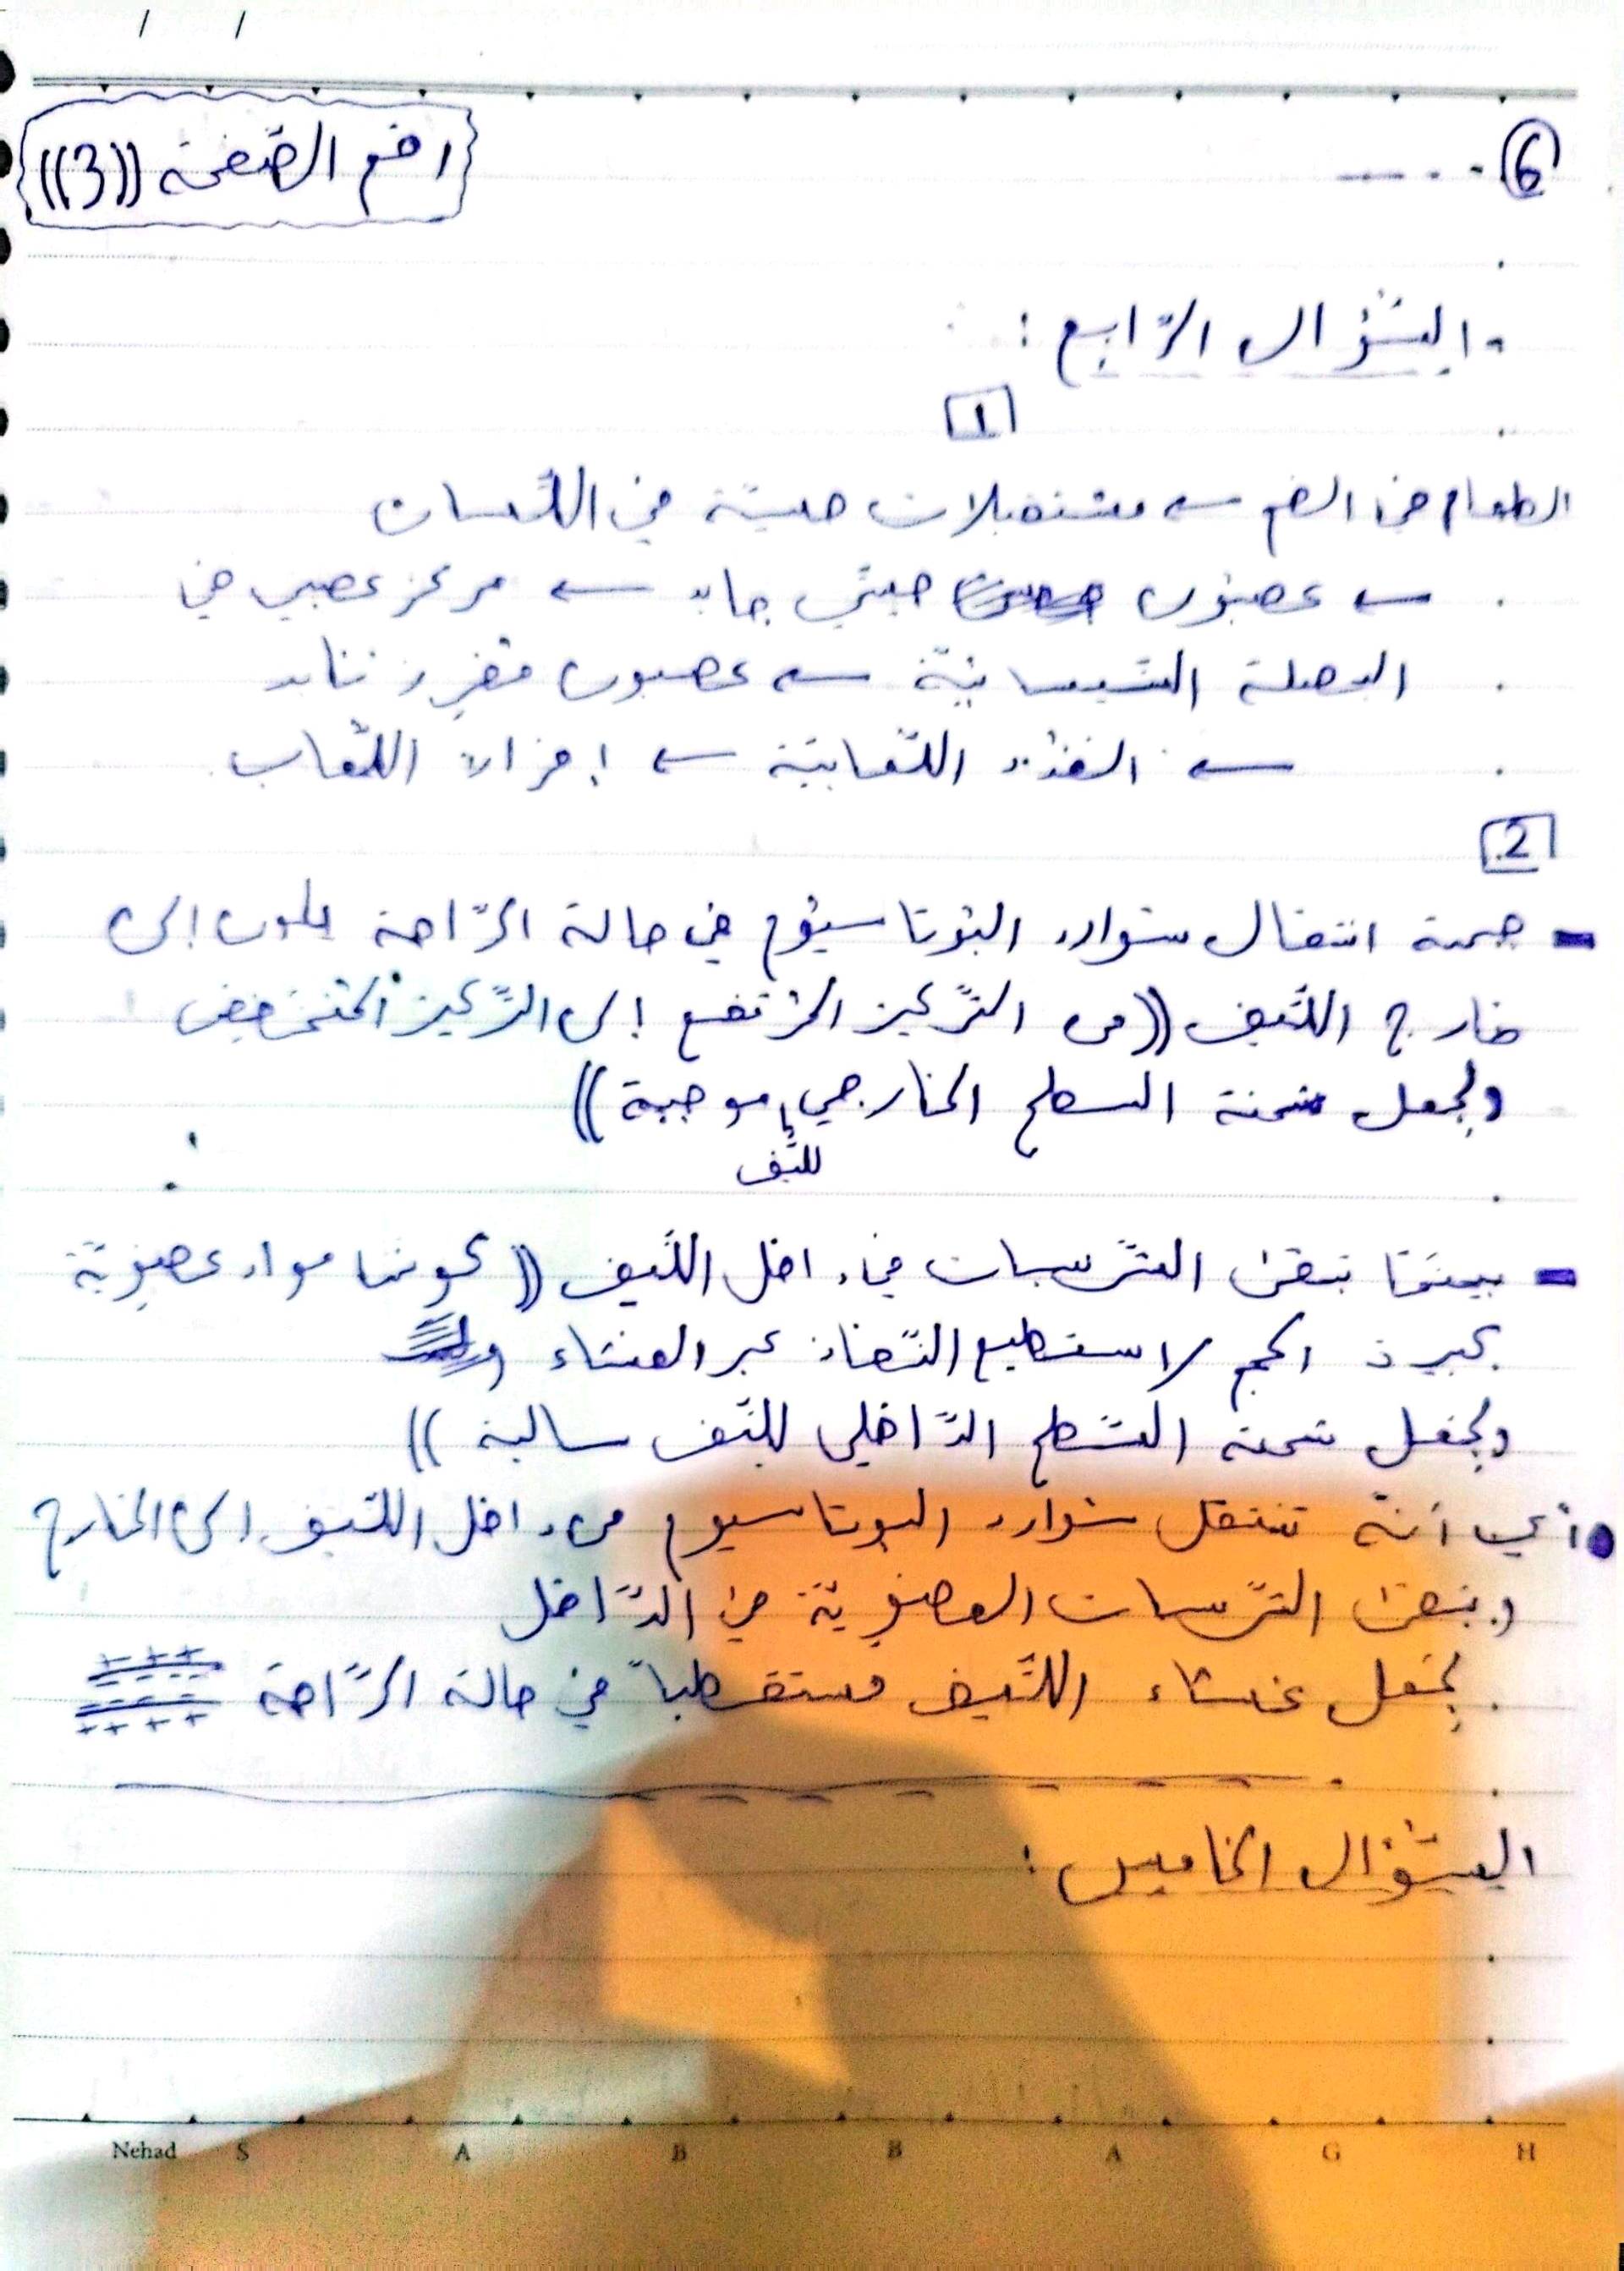 رقم الصفحة ((3))
6
السّؤال الرّابع :
1
الطعام في الفم ← مستقبلات حسيّة في اللّسان
← عصبون حسّي جابذ ← مركز عصبي في
البصلة السّيسائيّة ← عصبون مفرز نابذ
← الغدد اللّعابيّة ← إفراز اللّعاب
2
- جهة انتقال شوارد البوتاسيوم في حالة الرّاحة يكون إلى
خارج اللّيف ((من التّركيز المرتفع إلى التّركيز المنخفض
ويجعل شحنة السطح الخارجي للّيف موجبة))
- بينما تبقى الشّرسبات في داخل اللّيف ((كونها مواد عضويّة
كبيرة الحجم لا تستطيع النّفاذ عبر الغشاء
ويجعل شحنة السّطح الدّاخلي للّيف سالبة))
• أي أنّه تنتقل شوارد البوتاسيوم من داخل اللّيف إلى الخارج
وتبقى الشّرسبات العضويّة في الدّاخل
يجعل غشاء اللّيف مستقطباً في حالة الرّاحة
+ + +
- - - -
- - - -
+ + + +
السّؤال الخامس :
Nehad S A B B A G H